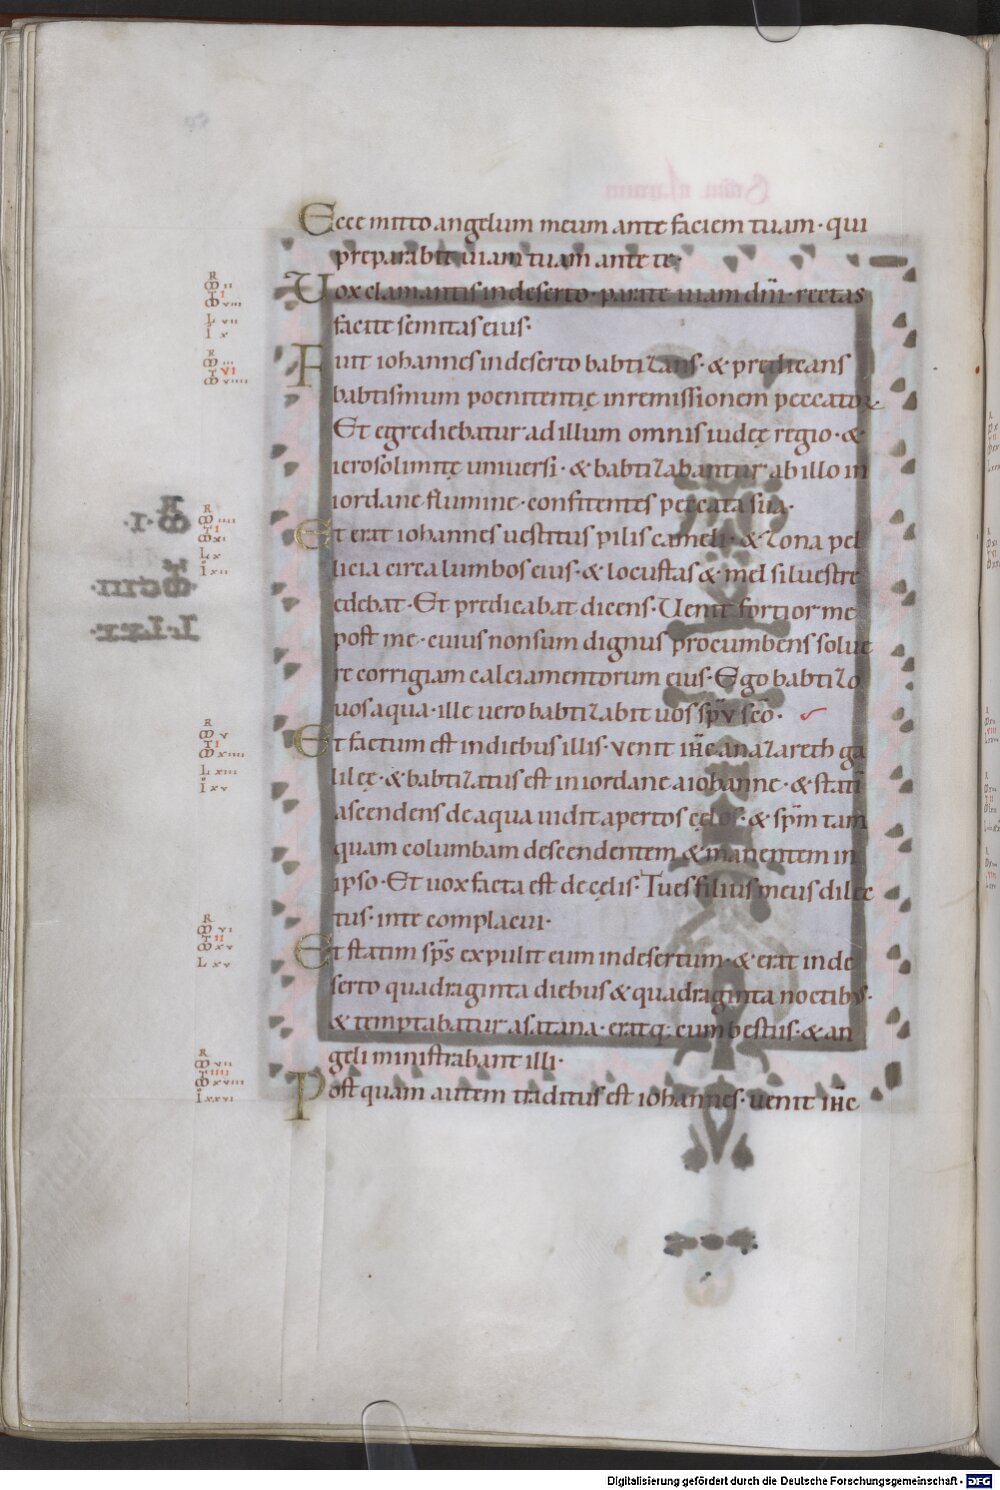 Ecce mitto angelum meum ante faciem tuam· qui
preparabit uiam tuam ante te·
Uox clamantis indeserto· parate uiam dnī· rectas
facite semitas eius·
Fuit iohannes indeserto babtizans· & predicans
babtismum poenitentię inremissionem peccatoꝝ
Et egrediebatur adillum omnis iudeę regio· &
ierosolimitę uniuersi· & babtizabantur abillo in
iordane flumine· confitentes peccata sua·
Et erat iohannes uestitus pilis cameli· & zona pel
licia circa lumbos eius· & locustas & mel siluestre
edebat· Et predicabat dicens· Uenit fortior me
post me· cuius nonsum dignus procumbens solue
re corrigiam calciamentorum eius· Ego babtizo
uos aqua· ille uero babtizabit uos spū scō·
Et factum est indiebus illis· uenit ihc̄ anazareth ga
lileę· & babtizatus est iniordane aiohanne· & statī
ascendens de aqua uidit apertos cęlos· & spm̄ tam
quam columbam descendentem & manentem in
ipso· Et uox facta est de cęlis· Tu es filius meus dilec
tus· inte complacui·
Et statim sps̄ expulit eum indesertum· & erat inde
serto quadraginta diebus & quadraginta noctibꝰ·
& temptabatur asatana· eratq; cum bestiis· & an
geli ministrabant illi·
Post quam autem traditus est iohannes· uenit ihc̄
Digitalisierung gefördert durch die Deutsche Forschungsgemeinschaft - DFG